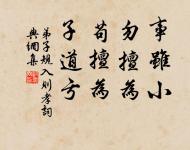 事雖小
勿擅為
苟擅為
子道虧
弟子規入則孝詞
典網集